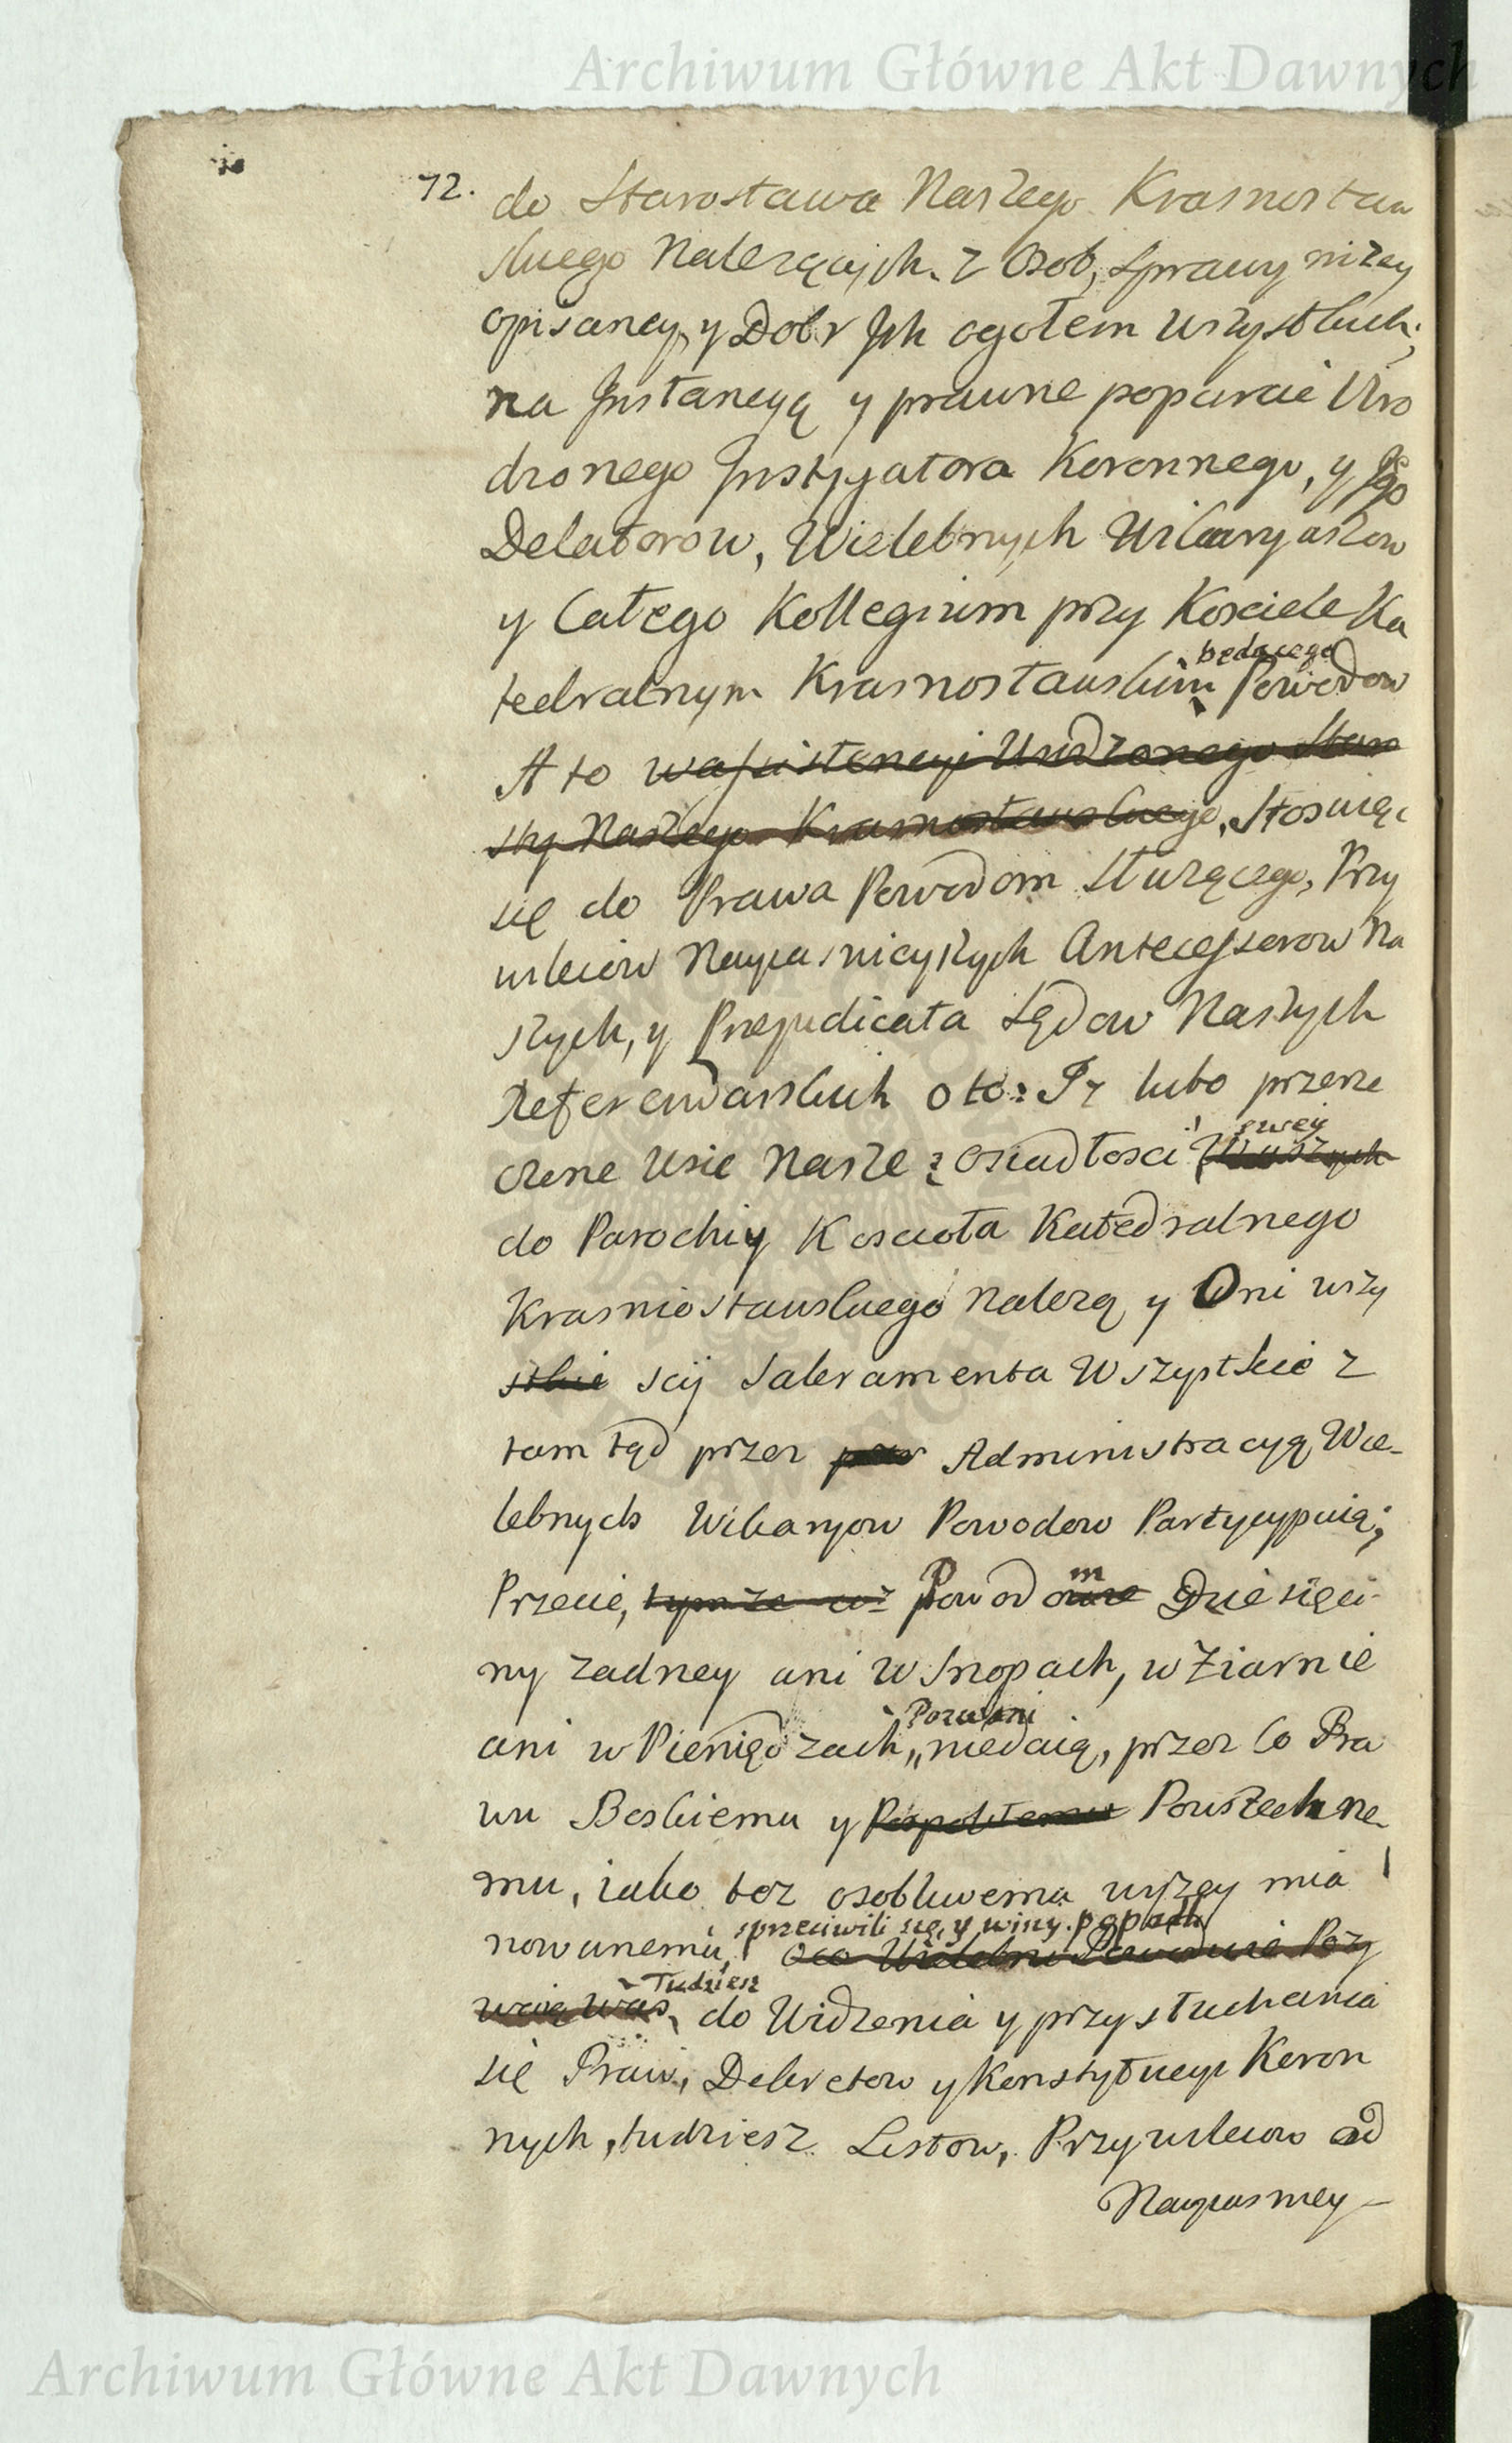 Archiwum Główne Akt Dawnych
72.
do Starostawa Naszego Krasnostaw
skiego Nalezących. z Osob, sprawy nizey
opisaney, y Dobr Jch ogołem wszystkich,
na Jnstancyą y prawne poparcie Uro
dzonego Jnstygatora Koronnego, y Jgo
Delatorow, Wielebnych Wikaryaszow
y Całego Kollegium przy Kosciele Ka
będącego
tedralnym Krasnostawskim Powodow
A to w assistencyi Urodzonego Staro
sty Naszego Krasnostawskiego, Stosuiąc
się do Prawa Powodom Służącego, Przy
wileiow Nayiasnieyszych Antecessorow Na
szych, y Prejudicata Sądow Naszych
Referendarskich oto: Jz lubo przerze
swey
czone Wsie Nasze z Osiadłosci
do Parochiy Koscioła Katedralnego
Krasniostawskiego Nalezą y Oni wszy
stkie scij Sakramenta Wszystkie z
tam tąd przez Administracyą Wie-
lebnych Wikaryow Powodow Partycypuią;
m
Przecie, tymze Powodom Dziesięci-
ny zadney ani w Snopach, w Ziarnie
Pozwani
ani w Pieniędzach, niedaią, przez co Pra
wu Boskiemu y Pospolitemu Powszechne-
mu, iako tez osobliwemu wyzey mia
sprzeciwili się, y winy popadli
nowanemu, Oco Wielebni Powodowie Pozy
Tudziesz
waią Was, do Widzenia y przysłuchania
się Praw, Dekretow y Konstytucyi Koron
nych, tudziesz Listow, Przywileiow od
Nayiasniey-
Archiwum Główne Akt Dawnych